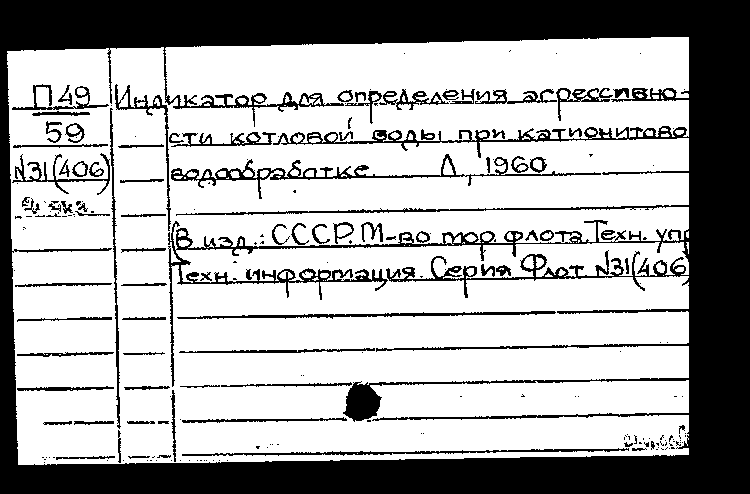 П49
59
N31(406)
Индикатор для определения агрессивно-
сти котловой воды при катионитово
водообработке. Л, 1960.
(В изд.: СССР. М-во мор. флота. Техн. упр
Техн. информация. Серия Флот N31(406)